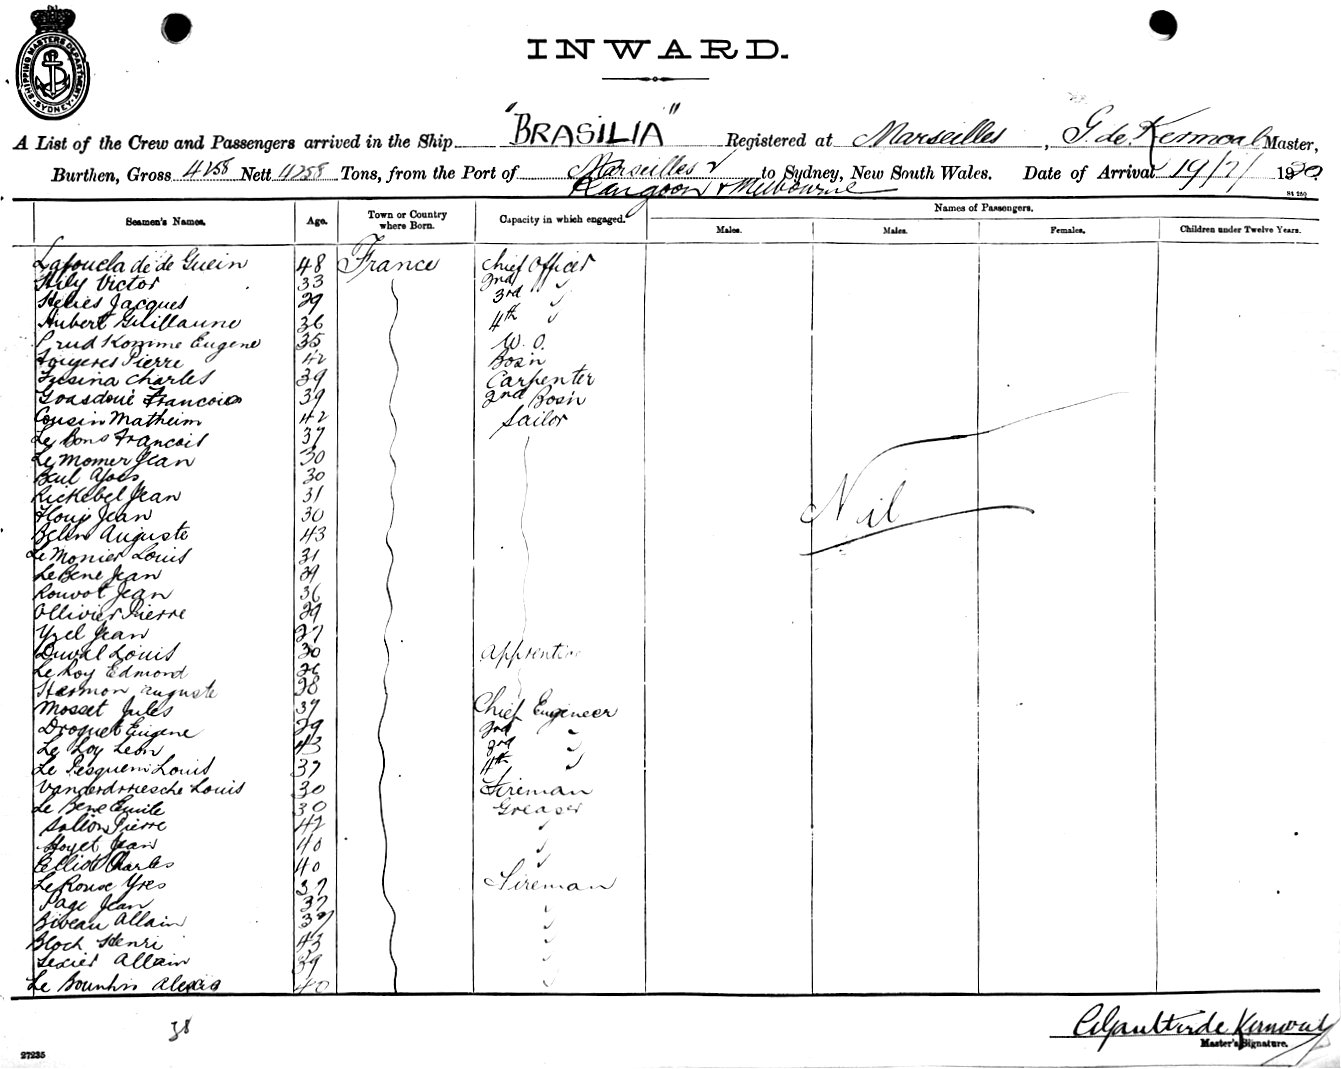 SHIPPING MASTERS DEPARTMENT SYDNEY
INWARD.
A List of the Crew and Passengers arrived in the Ship "BRASILIA" Registered at Marseilles, G. de Kermoal Master,
Burthen, Gross 4258 Nett 4258 Tons, from the Port of Marseilles to Sydney, New South Wales. Date of Arrival 19/7/1920
Rangoon & Melbourne
Seamen's Names. Age. Town or Country where Born. Capacity in which engaged. Names of Passengers.
Males. Males. Females. Children under Twelve Years.
48 France Chief Officer
Victor 33 2nd "
Jacques 29 3rd "
Hubert Guillaume 36 4th "
Eugene 35 W. O.
Fougeres Pierre 42 Bosn
Fusina Charles 39 Carpenter
Goasdoué Francois 39 2nd Bosn
Cousin Matheim 42 Sailor
Le Bons Francois 37
Le Momer Jean 30
30
Jean 31
Jean 30
Belin Auguste 43
Le Monier Louis 31
Le Bene Jean 39
Rouvot Jean 36
Ollivier Pierre 29
Yzel Jean 27
Duval Louis 30 Apprentice
Le Roy Edmond 26
Auguste 28
Mosset Jules 37 Chief Engineer
Droguet Eugene 29 2nd "
Le Loy Leon 43 3rd "
Le Louis 37 4th "
Louis 30 Fireman
Le Bene Emile 30 Greaser
Pierre 42 "
Jean 40 "
Elliot Charles 40 "
Le Roux Yves 37 Fireman
Page Jean 37 "
Biveau Allain 37 "
Bloch Henri 43 "
Allain 39 "
Le Alexis 40 "
Nil
38
Master's Signature.
27235